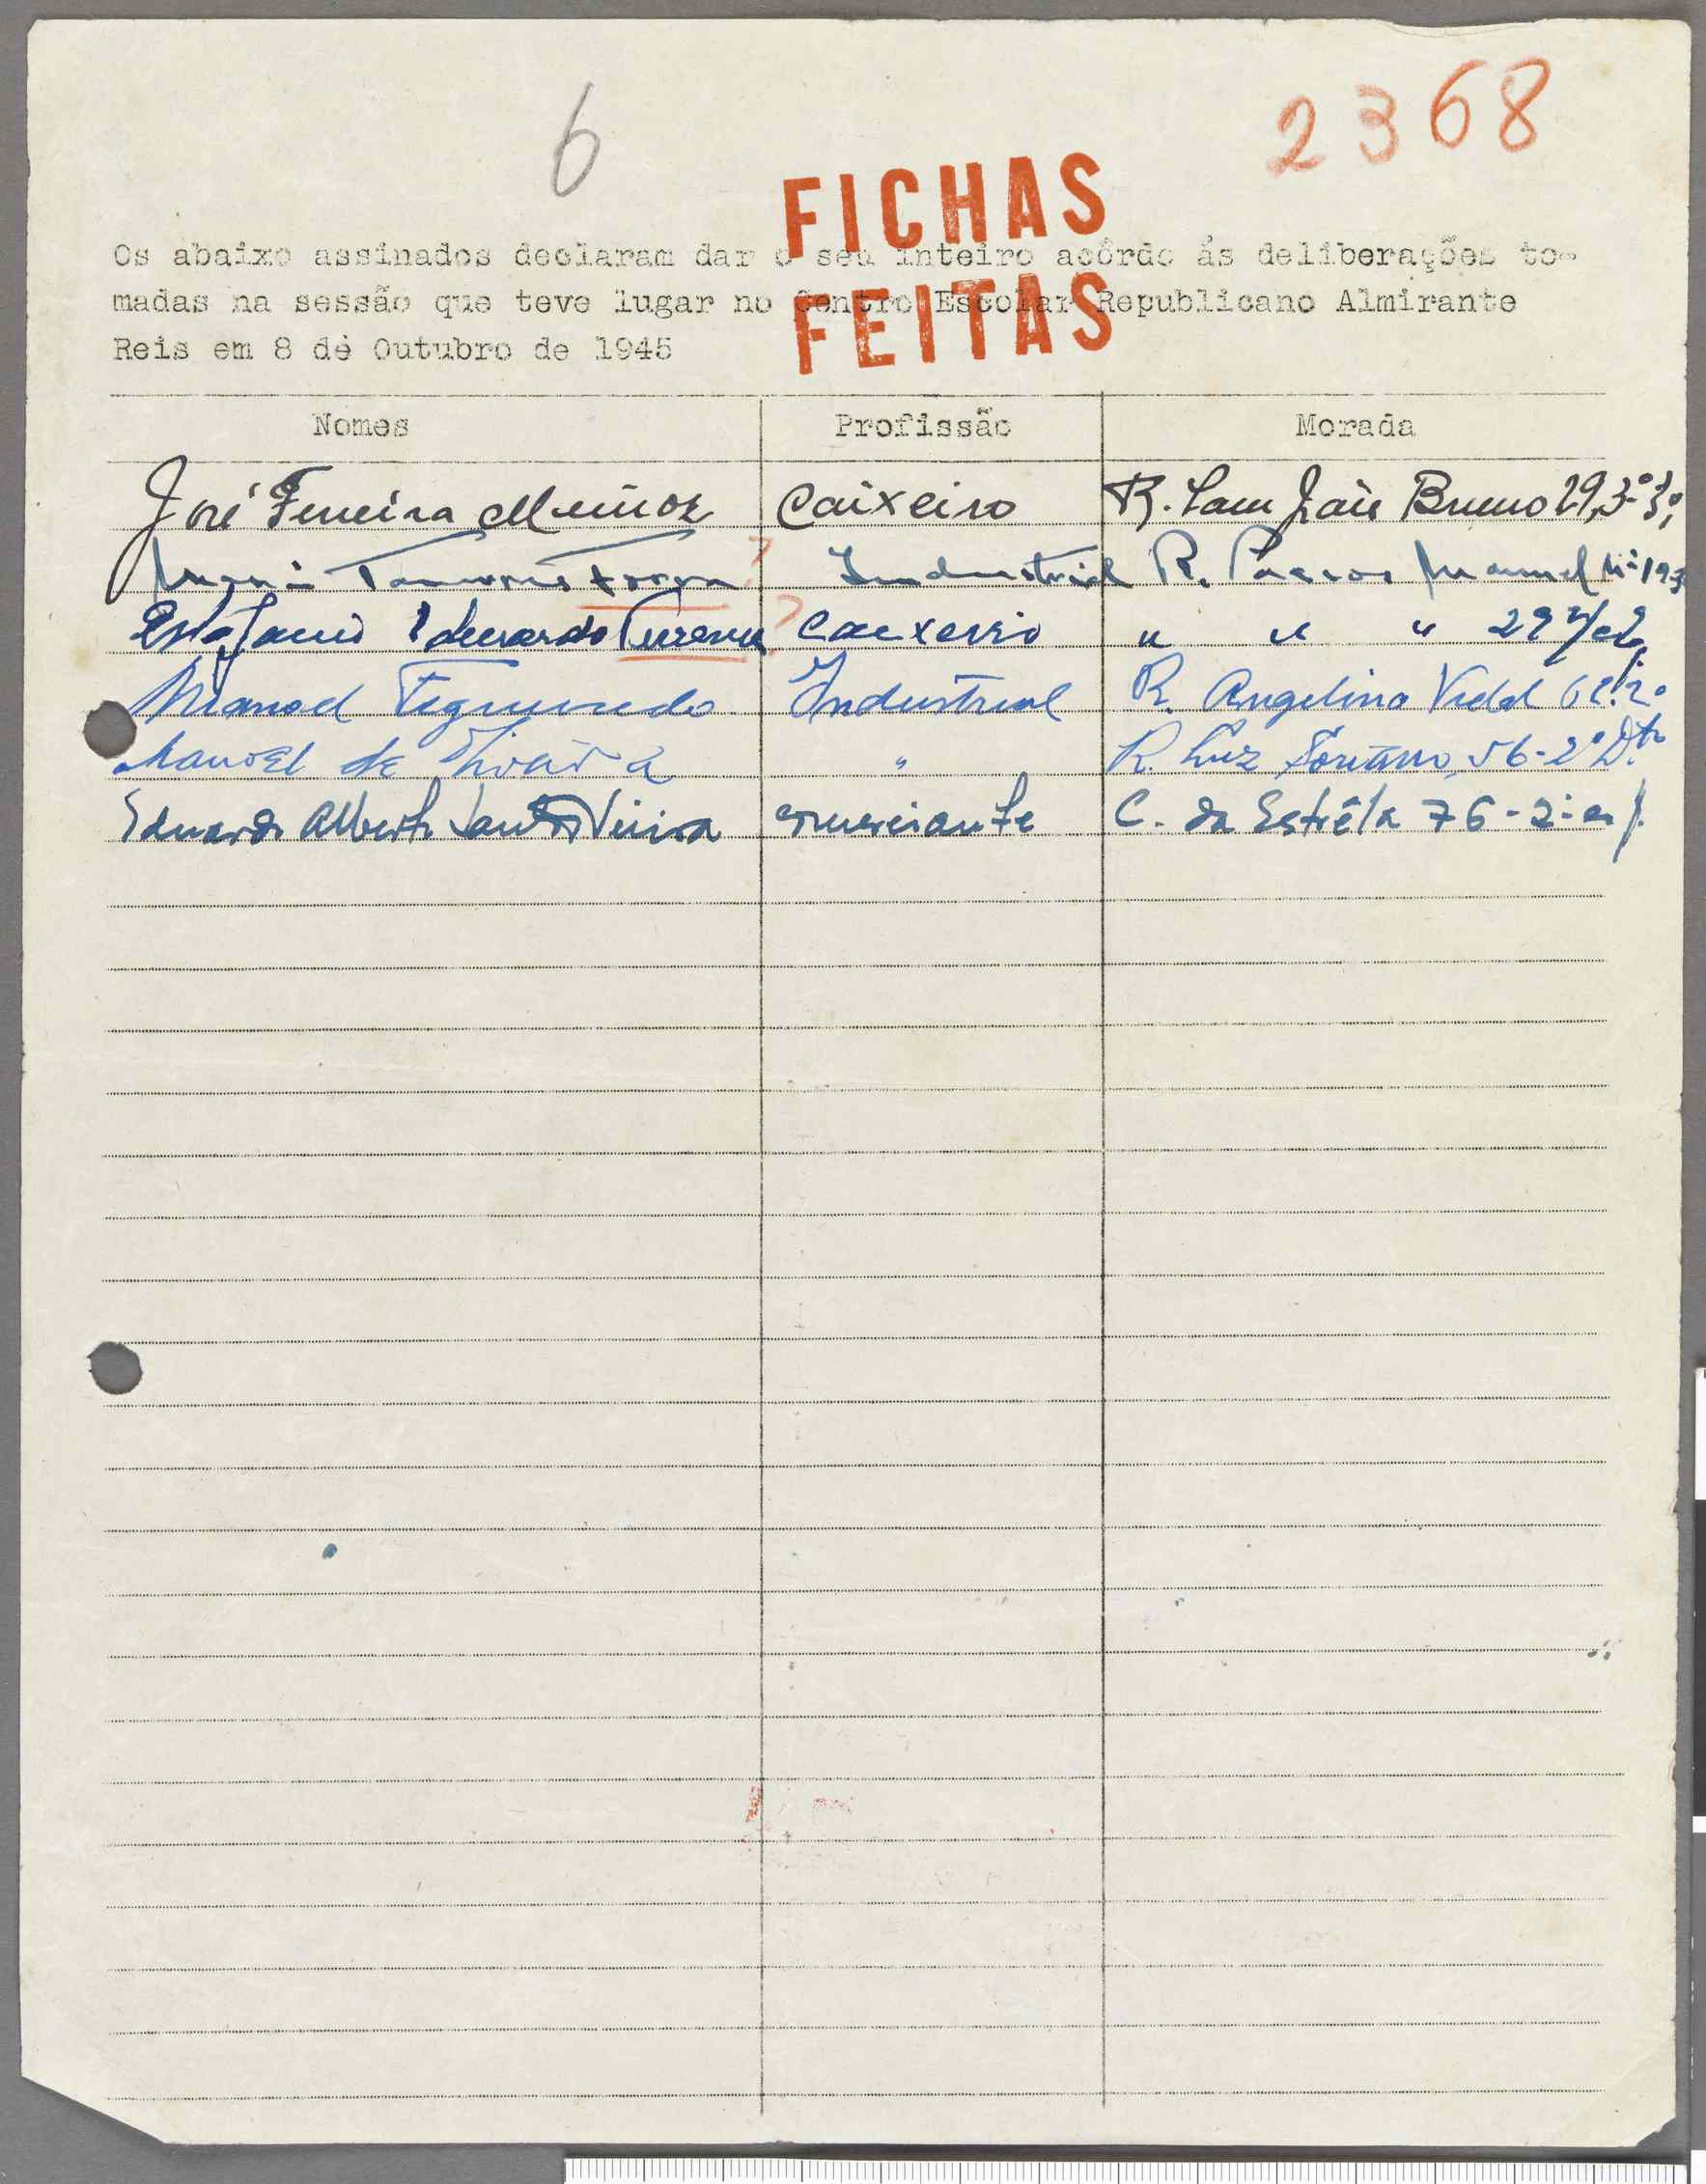 6
2368
FICHAS
FEITAS
Os abaixo assinados declaram dar o seu inteiro acôrdo ás deliberações to-
madas na sessão que teve lugar no Centro Escolar Republicano Almirante
Reis em 8 de Outubro de 1945
Nomes Profissão Morada
José Ferreira Muñoz Caixeiro R. Sam João Bruno 29, 3º
? Industrial R. Passos Manuel Nº 193
Eduardo ? Caixeiro " " " 29
Manoel Segismundo Industrial R. Angelina Vidal 62
Manoel de Oliveira " R. Luz Soriano, 56-2º Dto
Eduardo Alberto Santos Vieira comerciante C. da Estrêla 76-2º